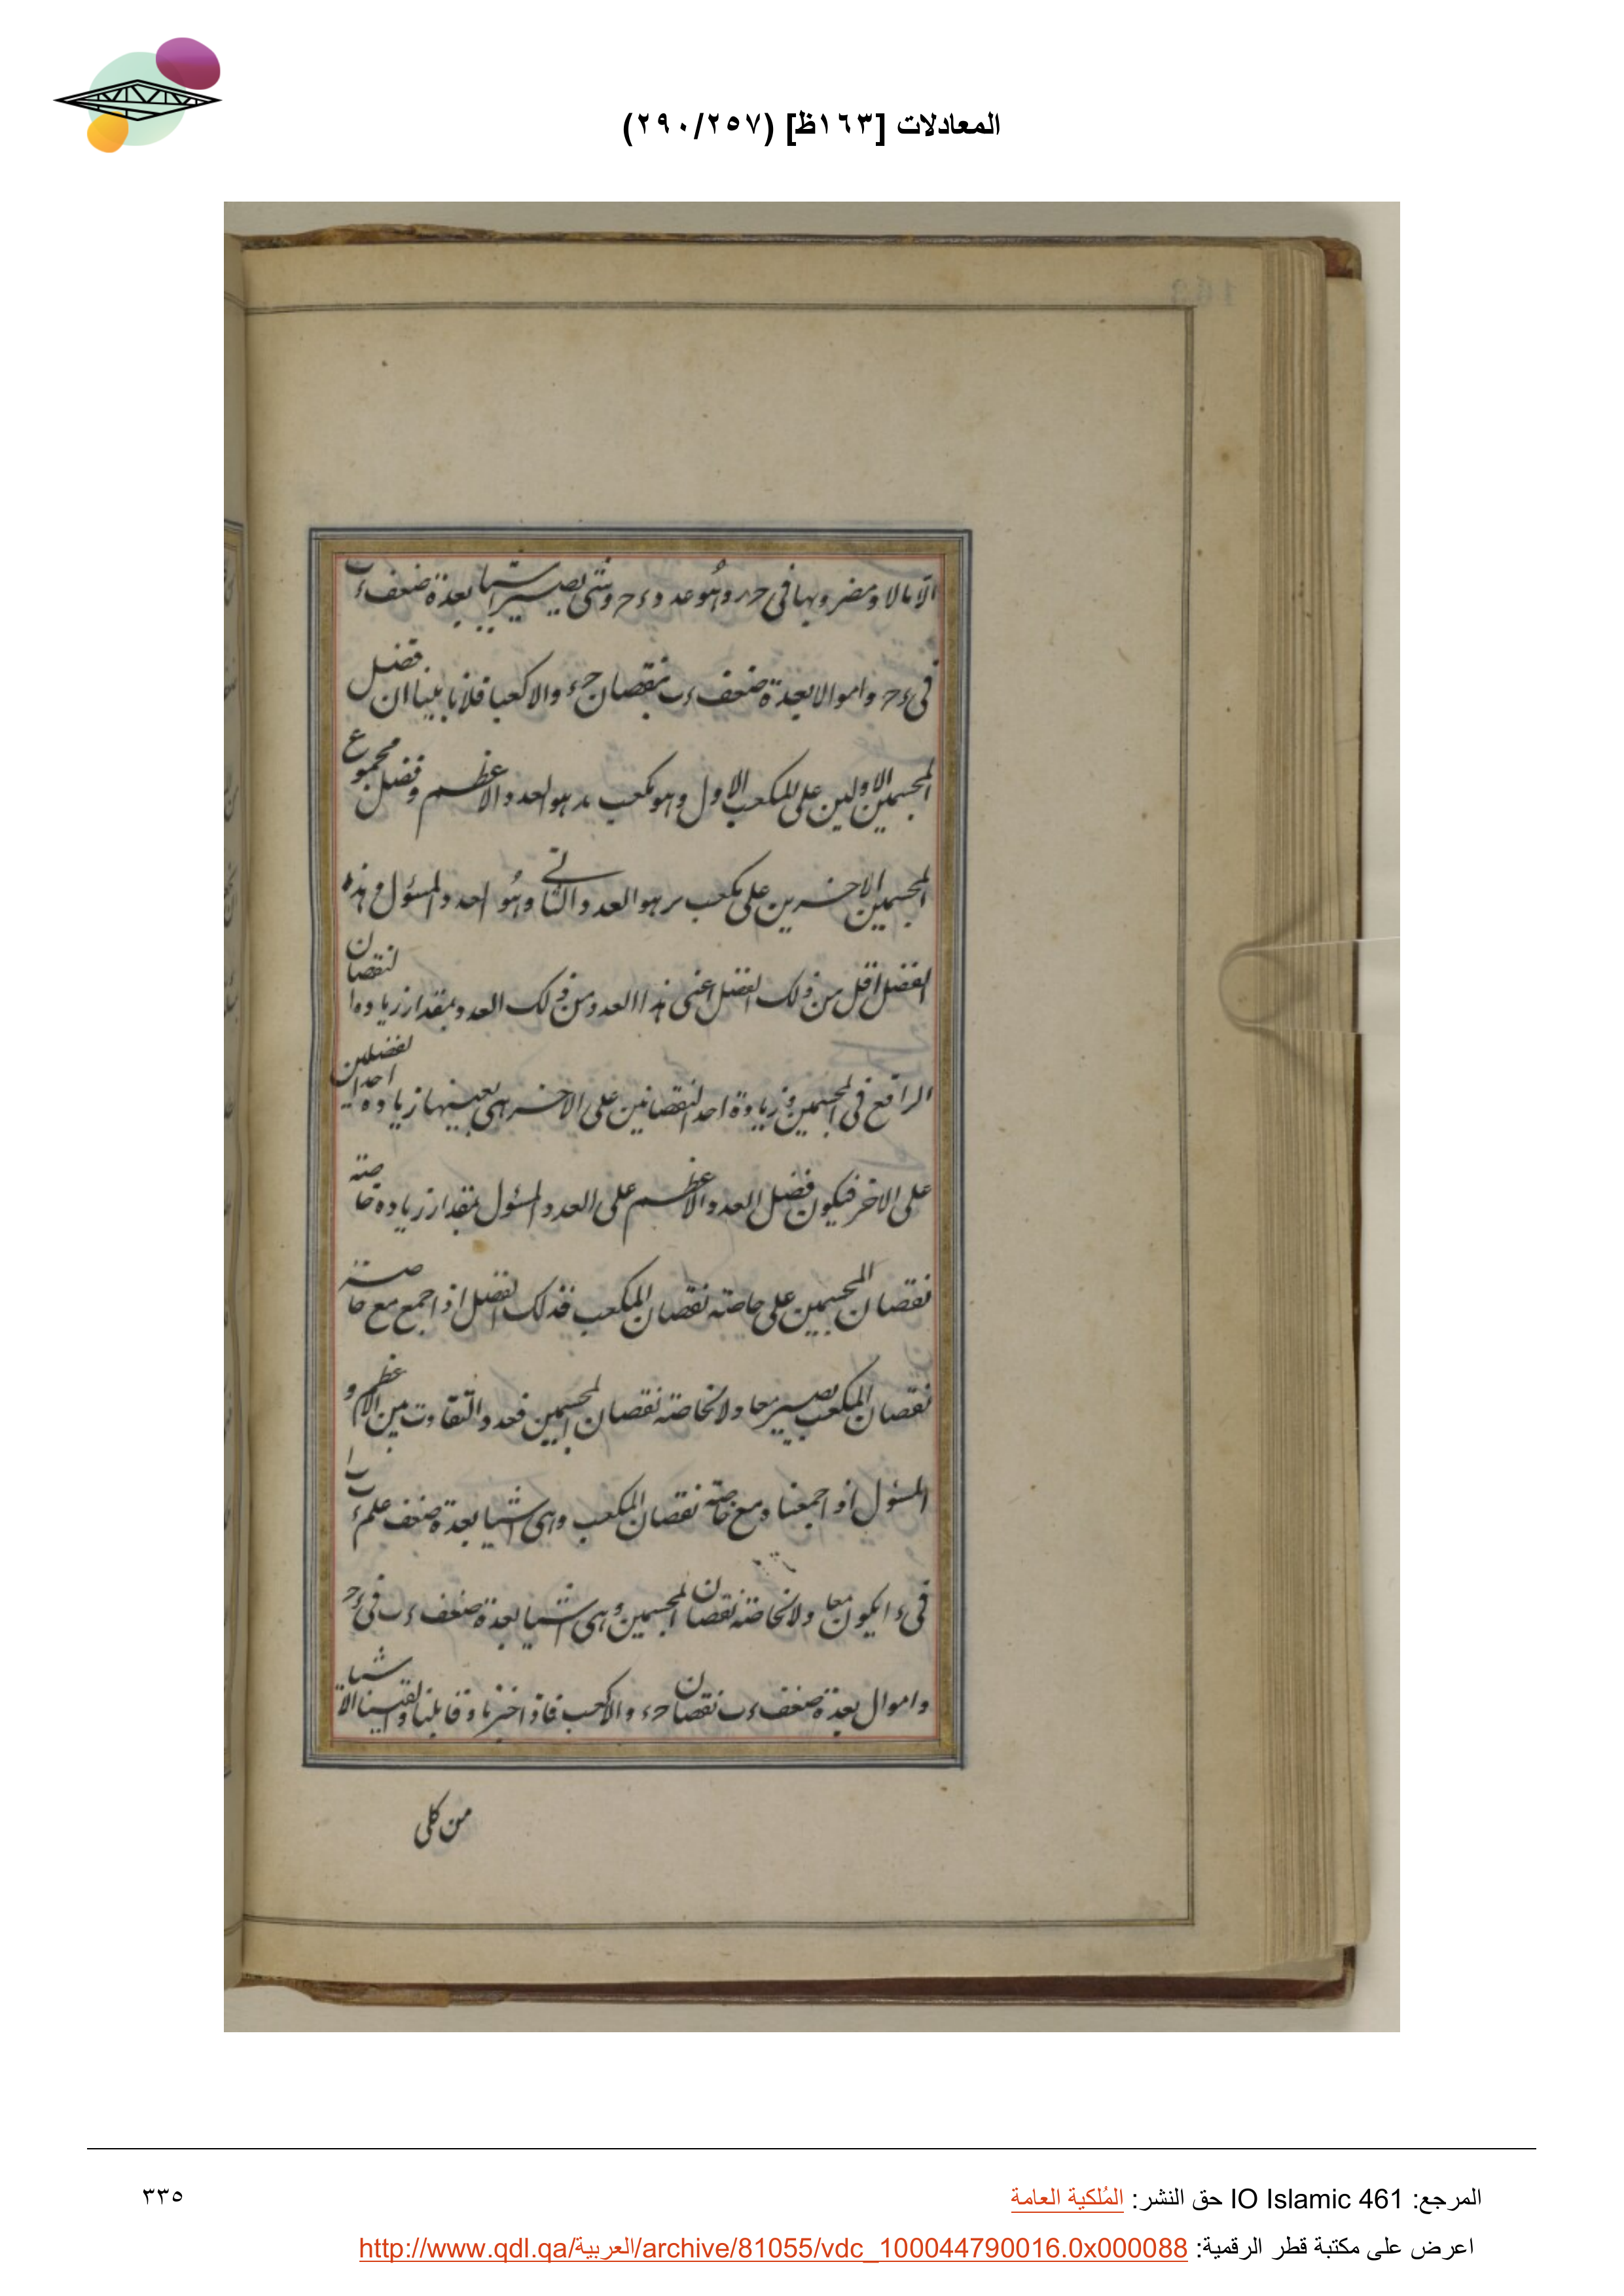 المعادلات [١٦٣ظ] (٢٩٠/٢٥٧)
الا مالا ومضروبها في حر وهو عدد ءح وشي يصير اشيا بعدة ضعف ءب
في ءح واموالا بعدة ضعف ءب بنقصان حء والا كعبا فلانا بينا ان فضل
المجسمين الاولين على المكعب الاول وهو مكعب هو العدد الاعظم وفضل مجموع
المجسمين الاخرين على مكعب هو العدد الثاني وهو احد المسئول وهذه
الفضل اقل من ذلك الفضل اعني هذا العدد من ذلك العدد بمقدار زيادة النقصان
الراقع في المجسمين وزيادة احد النقصانين على الاخر هي بعينها زيادة احد الفضلين
على الاخر فيكون فضل العدد الاعظم على العدد المسئول بمقدار زيادة خاصته
نقصان المجسمين على خاصته نقصان المكعب فذلك الفضل اذا جمع مع خاصته
نقصان المكعب يصير معا ولا لخاصته نقصان المجسمين فعدد التفاوت بين الاعظم و
المسئول اذا جمعناه مع خاصته نقصان المكعب وهي اشيا بعدة ضعف
في ءا يكون معا ولا لخاصته نقصان المجسمين وهي اشيا بعدة ضعف ءب في ءح
واموال بعدة ضعف ءب نقصان حء والا كعب فاذا اخبرنا وقابلنا والقينا الاشيا
من كلى
المرجع: IO Islamic 461 حق النشر: المُلكية العامة
٣٣٥
اعرض على مكتبة قطر الرقمية: http://www.qdl.qa/العربية/archive/81055/vdc_100044790016.0x000088